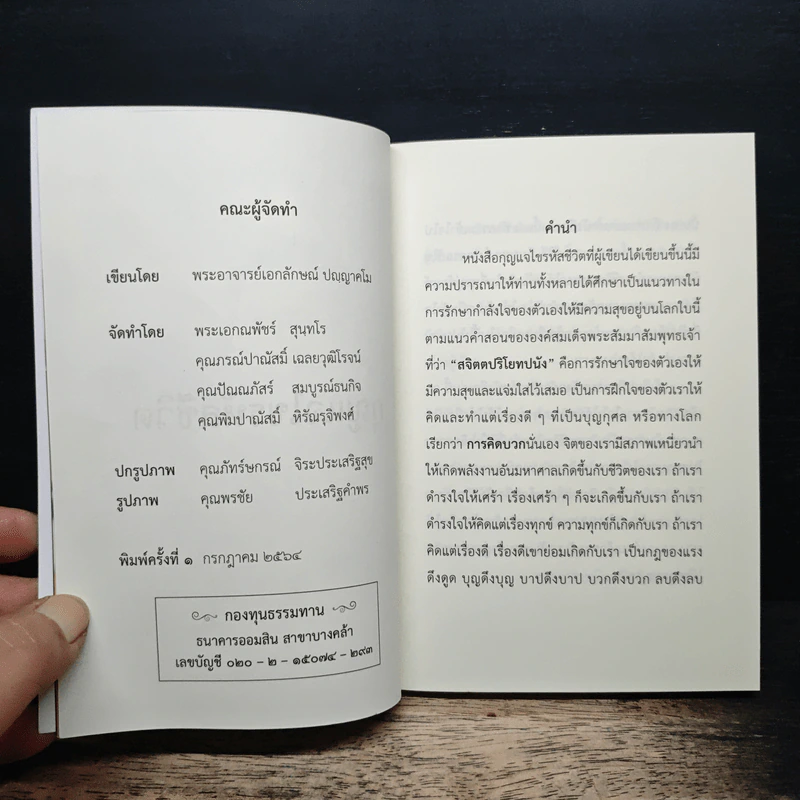 คณะผู้จัดทำ
เขียนโดย พระอาจารย์เอกลักษณ์ ปญฺญาคโม
จัดทำโดย พระเอกณพัชร์ สุนฺทโร
คุณภรณ์ปาณัสมิ์ เฉลยวุฒิโรจน์
คุณปัณณภัสร์ สมบูรณ์ธนกิจ
คุณพิมปาณัสมิ์ หิรัณรุจิพงศ์
ปกรูปภาพ คุณภัทร์ษกรณ์ จิระประเสริฐสุข
รูปภาพ คุณพรชัย ประเสริฐคำพร
พิมพ์ครั้งที่ ๑ กรกฎาคม ๒๕๖๔
กองทุนธรรมทาน
ธนาคารออมสิน สาขาบางคล้า
เลขบัญชี ๐๒๐ – ๒ – ๑๕๐๗๔ – ๒๙๓
คำนำ
หนังสือกุญแจไขรหัสชีวิตที่ผู้เขียนได้เขียนขึ้นนี้มี
ความปรารถนาให้ท่านทั้งหลายได้ศึกษาเป็นแนวทางใน
การรักษากำลังใจของตัวเองให้มีความสุขอยู่บนโลกใบนี้
ตามแนวคำสอนขององค์สมเด็จพระสัมมาสัมพุทธเจ้า
ที่ว่า “สจิตตปริโยทปนัง” คือการรักษาใจของตัวเองให้
มีความสุขและแจ่มใสไว้เสมอ เป็นการฝึกใจของตัวเราให้
คิดและทำแต่เรื่องดี ๆ ที่เป็นบุญกุศล หรือทางโลก
เรียกว่า การคิดบวกนั่นเอง จิตของเรามีสภาพเหนี่ยวนำ
ให้เกิดพลังงานอันมหาศาลเกิดขึ้นกับชีวิตของเรา ถ้าเรา
ดำรงใจให้เศร้า เรื่องเศร้า ๆ ก็จะเกิดขึ้นกับเรา ถ้าเรา
ดำรงใจให้คิดแต่เรื่องทุกข์ ความทุกข์ก็เกิดกับเรา ถ้าเรา
คิดแต่เรื่องดี เรื่องดีเขาย่อมเกิดกับเรา เป็นกฎของแรง
ดึงดูด บุญดึงบุญ บาปดึงบาป บวกดึงบวก ลบดึงลบ